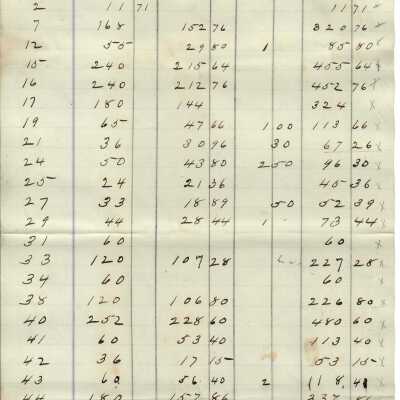 2 11 71 11 71 x
7 168 152 76 320 76 x
12 55 29 80 1 85 80 x
15 240 215 64 455 64 x
16 240 212 76 452 76 x
17 180 144 324 x
19 65 47 66 1 00 113 66 x
21 36 30 96 30 67 26 x
24 50 43 80 2 50 96 30 x
25 24 21 36 45 36 x
27 33 18 89 50 52 39 x
29 44 28 44 1 - 73 44 x
31 60 60 x
33 120 107 28 227 28 x
34 60 60 x
38 120 106 80 226 80 x
40 252 228 60 480 60 x
41 60 53 40 113 40 x
42 36 17 15 53 15 x
43 60 56 40 2 118 40 x
44 180 157 86 337 86